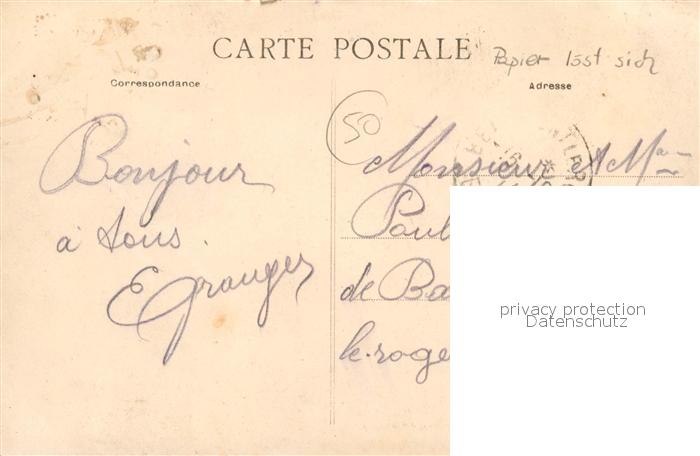 CARTE POSTALE
Papier löst sich
Correspondance
Adresse
50
Bonjour
à tous.
EGranger
Monsieur & Me
Paul
de Ba
le-roge
privacy protection
Datenschutz